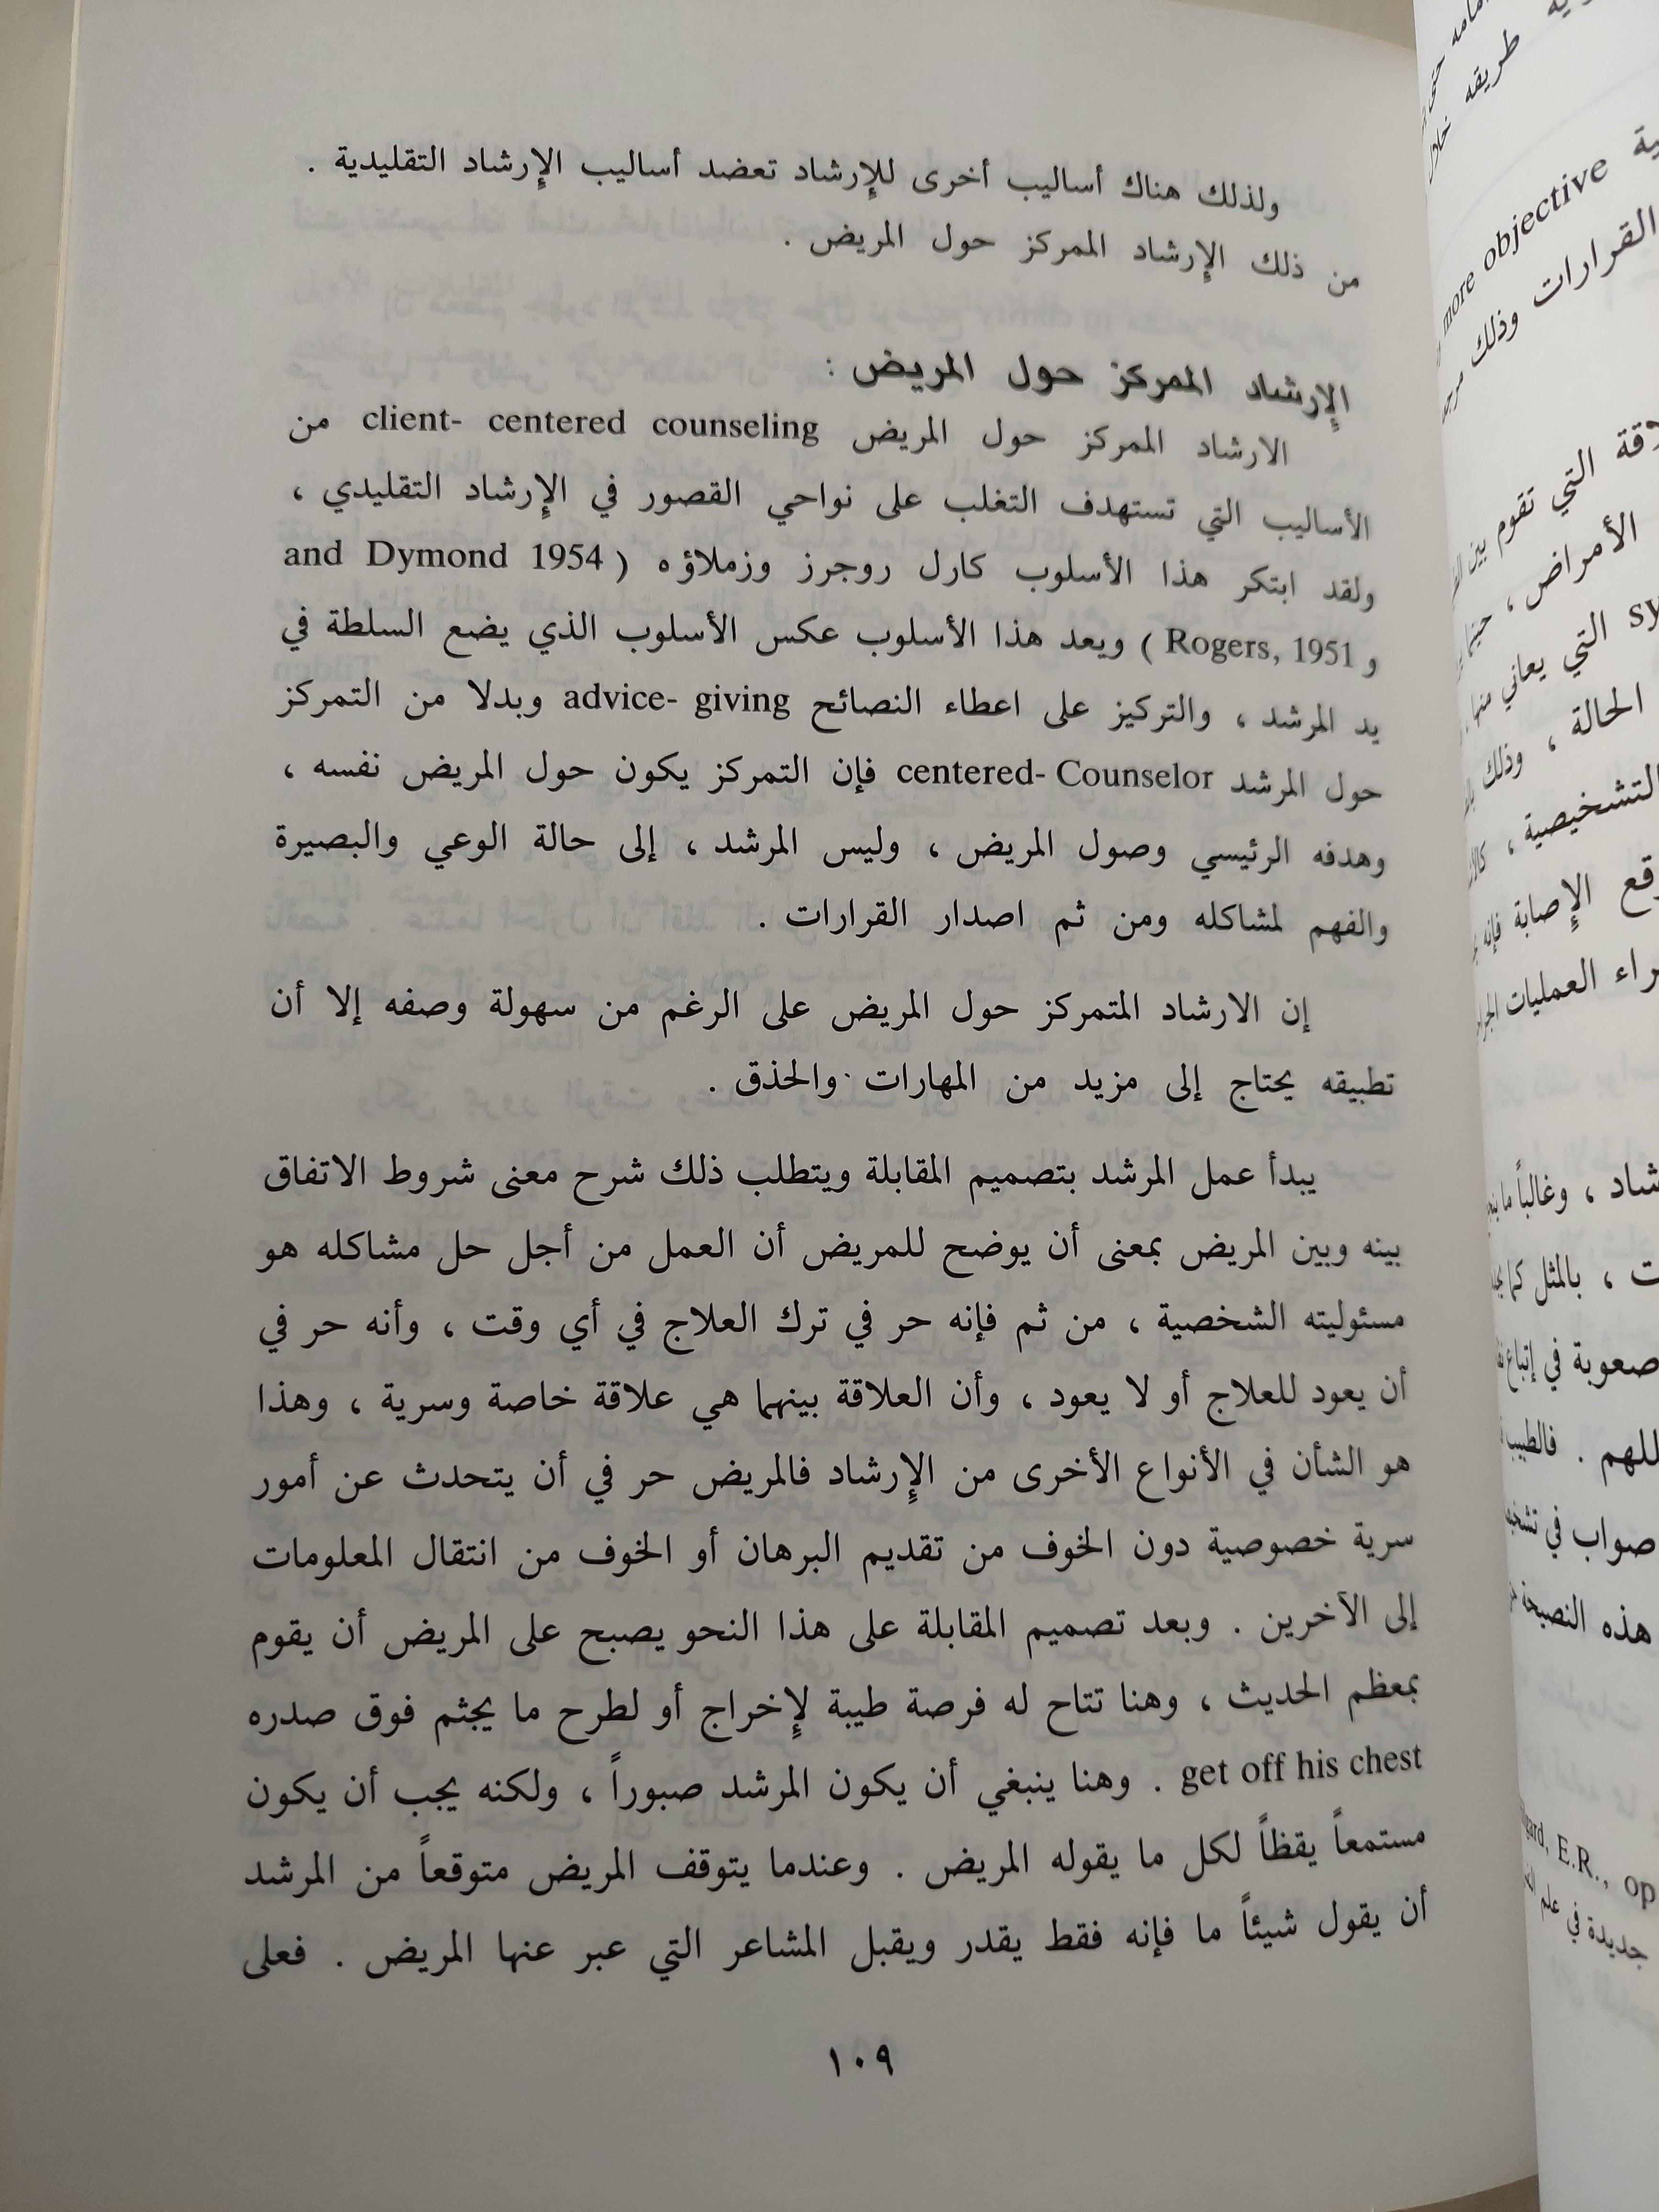 ولذلك هناك أساليب أخرى للإرشاد تعضد أساليب الإرشاد التقليدية .
من ذلك الإرشاد الممركز حول المريض .
الإرشاد الممركز حول المريض :
الارشاد الممركز حول المريض client- centered counseling من
الأساليب التي تستهدف التغلب على نواحي القصور في الإرشاد التقليدي ،
ولقد ابتكر هذا الأسلوب كارل روجرز وزملاؤه ( and Dymond 1954
و Rogers, 1951 ) ويعد هذا الأسلوب عكس الأسلوب الذي يضع السلطة في
يد المرشد ، والتركيز على اعطاء النصائح advice- giving وبدلا من التمركز
حول المرشد centered- Counselor فإن التمركز يكون حول المريض نفسه ،
وهدفه الرئيسي وصول المريض ، وليس المرشد ، إلى حالة الوعي والبصيرة
والفهم لمشاكله ومن ثم اصدار القرارات .
إن الارشاد المتمركز حول المريض على الرغم من سهولة وصفه إلا أن
تطبيقه يحتاج إلى مزيد من المهارات والحذق .
يبدأ عمل المرشد بتصميم المقابلة ويتطلب ذلك شرح معنى شروط الاتفاق
بينه وبين المريض بمعنى أن يوضح للمريض أن العمل من أجل حل مشاكله هو
مسئوليته الشخصية ، من ثم فإنه حر في ترك العلاج في أي وقت ، وأنه حر في
أن يعود للعلاج أو لا يعود ، وأن العلاقة بينهما هي علاقة خاصة وسرية ، وهذا
هو الشأن في الأنواع الأخرى من الإرشاد فالمريض حر في أن يتحدث عن أمور
سرية خصوصية دون الخوف من تقديم البرهان أو الخوف من انتقال المعلومات
إلى الآخرين . وبعد تصميم المقابلة على هذا النحو يصبح على المريض أن يقوم
بمعظم الحديث ، وهنا تتاح له فرصة طيبة لإخراج أو لطرح ما يجثم فوق صدره
get off his chest . وهنا ينبغي أن يكون المرشد صبوراً ، ولكنه يجب أن يكون
مستمعاً يقظاً لكل ما يقوله المريض . وعندما يتوقف المريض متوقعاً من المرشد
أن يقول شيئاً ما فإنه فقط يقدر ويقبل المشاعر التي عبر عنها المريض . فعلى
١٠٩
طريقه خلال
more objective
القرارات وذلك
التي تقوم بين
الأمراض ، حينما
التي يعاني منها
الحالة ، وذلك
التشخيصية ،
الإصابة فإنه
العمليات
، وغالباً ما
، بالمثل كما
صعوبة في إتباع
للهم . فالطبيب
صواب في
هذه النصيحة
E.R., op
جديدة في علم